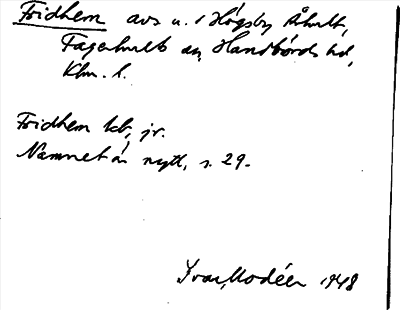 Fridhem avs u. 1 Högsby Åhult,
Fagerhults sn, Handbörds hd,
Klm. l.
Fridhem kb, jr.
Namnet är nytt, s. 29.
Ivar Modéer 1948